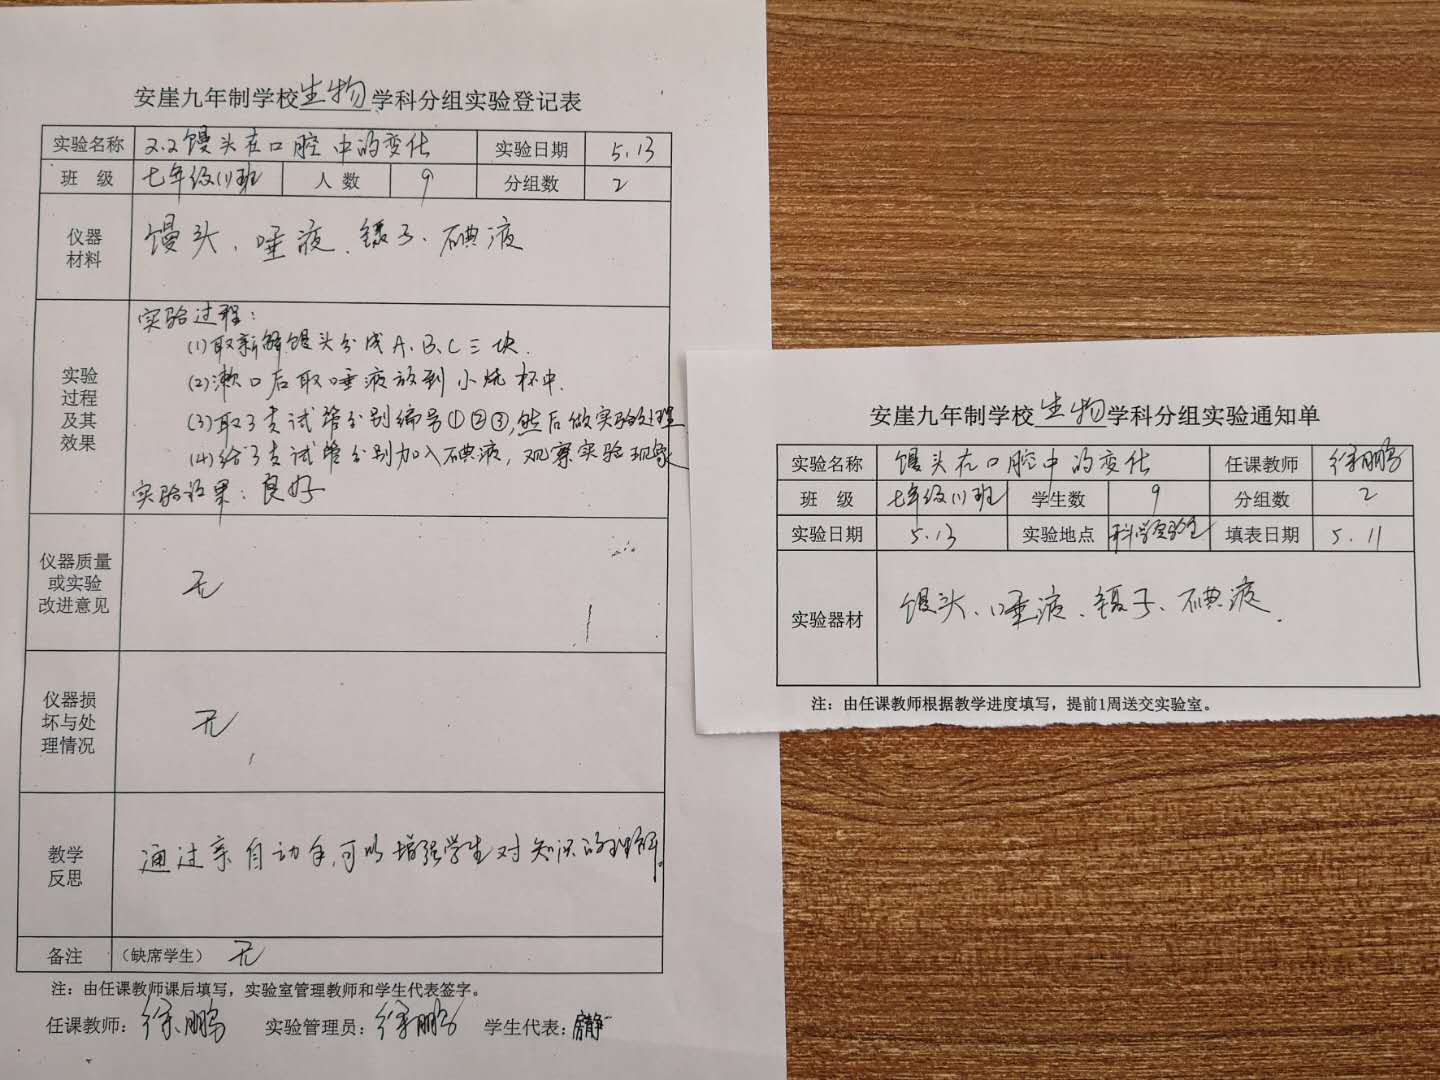 安崖九年制学校生物学科分组实验登记表
实验名称 2.2馒头在口腔中的变化 实验日期 5.13
班 级 七年级(1)班 人 数 9 分组数 2
仪器
材料
馒头、唾液、镊子、碘液
实验
过程
及其
效果
实验过程:
(1)取新鲜馒头分成A、B、C三块.
(2)漱口后取唾液放到小烧杯中.
(3)取3支试管分别编号①②③,然后做实验处理
(4)给3支试管分别加入碘液,观察实验现象
实验结果:良好
仪器质量
或实验
改进意见
无
仪器损
坏与处
理情况
无
教学
反思
通过亲自动手,可以增强学生对知识的理解。
备注 (缺席学生) 无
注:由任课教师课后填写,实验室管理教师和学生代表签字。
任课教师:徐鹏 实验管理员:徐鹏 学生代表:
安崖九年制学校生物学科分组实验通知单
实验名称 馒头在口腔中的变化 任课教师 徐鹏
班 级 七年级(1)班 学生数 9 分组数 2
实验日期 5.13 实验地点 科学实验室 填表日期 5.11
实验器材 馒头、唾液、镊子、碘液.
注:由任课教师根据教学进度填写,提前1周送交实验室。